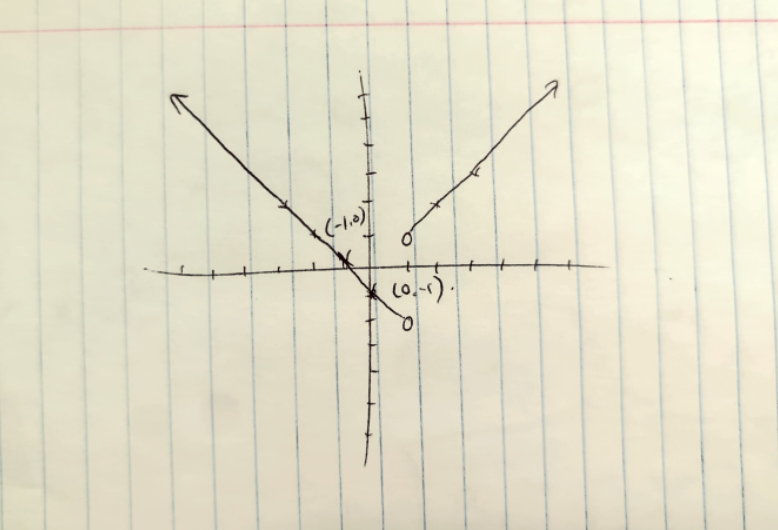 (-1,0)
(0,-1).